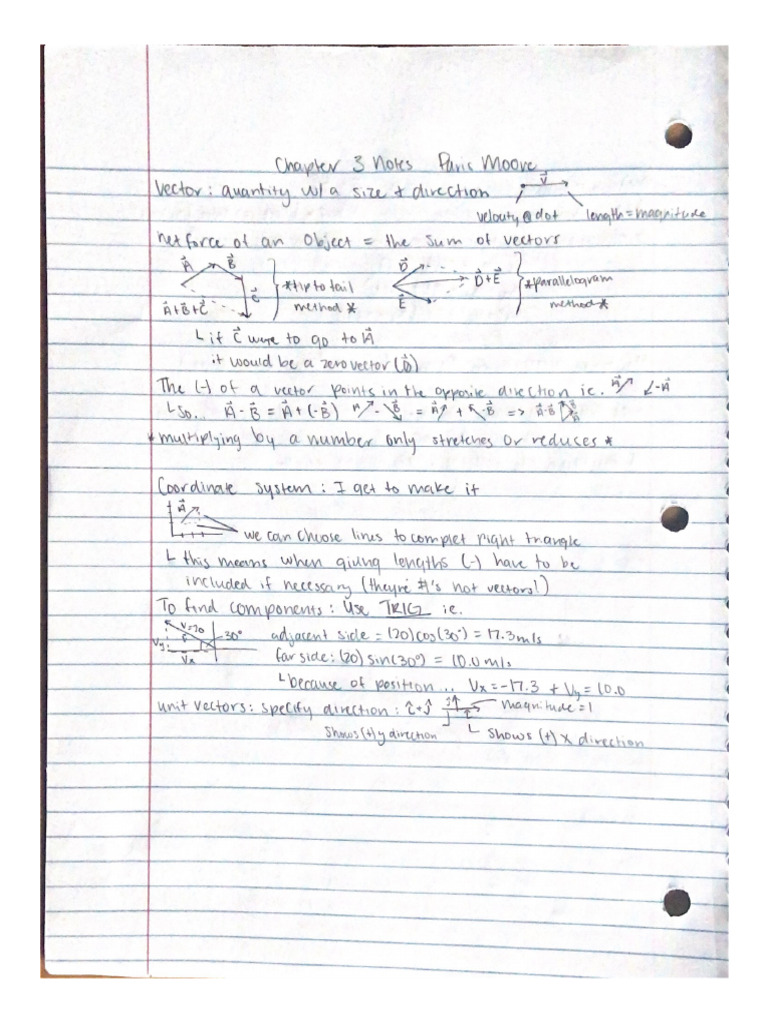 Chapter 3 Notes Paris Moore
Vector: quantity w/ a size + direction
V⃗
velocity @ dot length = magnitude
net force of an object = the sum of vectors
A⃗ B⃗ C⃗ A⃗+B⃗+C⃗ *tip to tail method* D⃗ E⃗ D⃗+E⃗ *parallelogram method*
└ if C⃗ were to go to A⃗
it would be a zero vector (0⃗)
The (-) of a vector points in the opposite direction ie. A⃗ -A⃗
└ So.. A⃗ - B⃗ = A⃗ + (-B⃗) A⃗ - B⃗ = A⃗ + -B⃗ => A⃗-B⃗
*multiplying by a number only stretches or reduces*
Coordinate system: I get to make it
A⃗
we can choose lines to complet right triangle
└ this means when giving lengths (-) have to be
included if necessary (they're #'s not vectors!)
To find components: Use TRIG ie.
v=20 30° Vy Vx
adjacent side = (20)cos(30°) = 17.3m/s
far side: (20) sin(30°) = 10.0 m/s
└ because of position .. Vx = -17.3 + Vy = 10.0
unit vectors: specify direction: î + ĵ magnitude = 1
shows (+) y direction └ shows (+) x direction